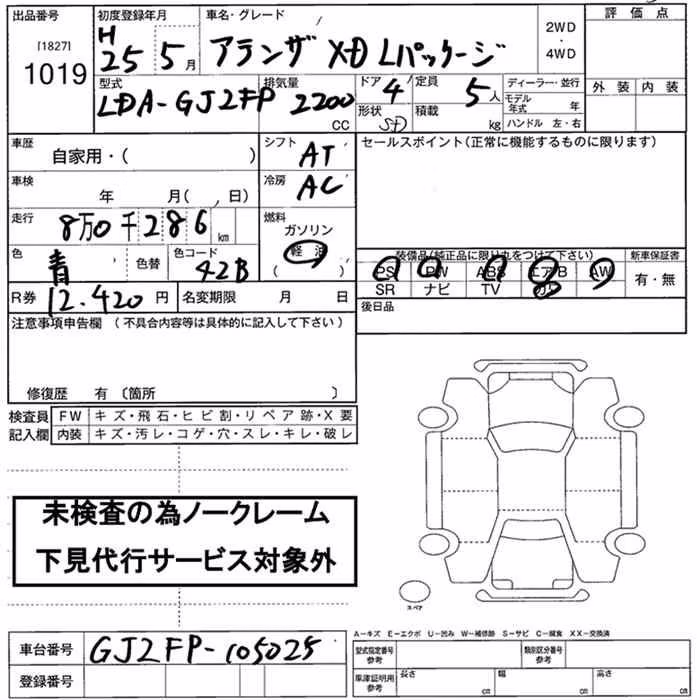 出品番号 初度登録年月 車名・グレード 2WD ・ 4WD 評価点
[1827] H
1019 25 5月 アランザ XD Lパッケージ
外装 内装
型式 排気量 ドア 4 定員 5人 ディーラー・並行
LDA-GJ2FP 2200 CC 形状 SD 積載 kg モデル年式 年
ハンドル 左・右
車歴 自家用・( ) シフト AT セールスポイント(正常に機能するものに限ります)
車検 年 月( , 日) 冷房 AC
走行 8万0千286 km 燃料 ガソリン
軽油
( )
色 青 色替 色コード 42B 装備品(純正品に限り丸をつけて下さい) 新車保証書
PS PW ABS エアB AW 有・無
SR ナビ TV カワ
R券 12.420円 名変期限 月 日 後日品
注意事項申告欄 (不具合内容等は具体的に記入して下さい)
修復歴 有 〔箇所 〕
検査員 FW キズ・飛石・ヒビ割・リペア跡・X要
記入欄 内装 キズ・汚レ・コゲ・穴・スレ・キレ・破レ
未検査の為ノークレーム
下見代行サービス対象外
スペア
A-キズ E-エクボ U-凹み W-補修跡 S-サビ C-腐食 XX-交換済
車台番号 GJ2FP-105025 型式指定番号 参考 類別区分番号 参考
登録番号 車庫証明用 参考 長さ cm 幅 cm 高さ cm